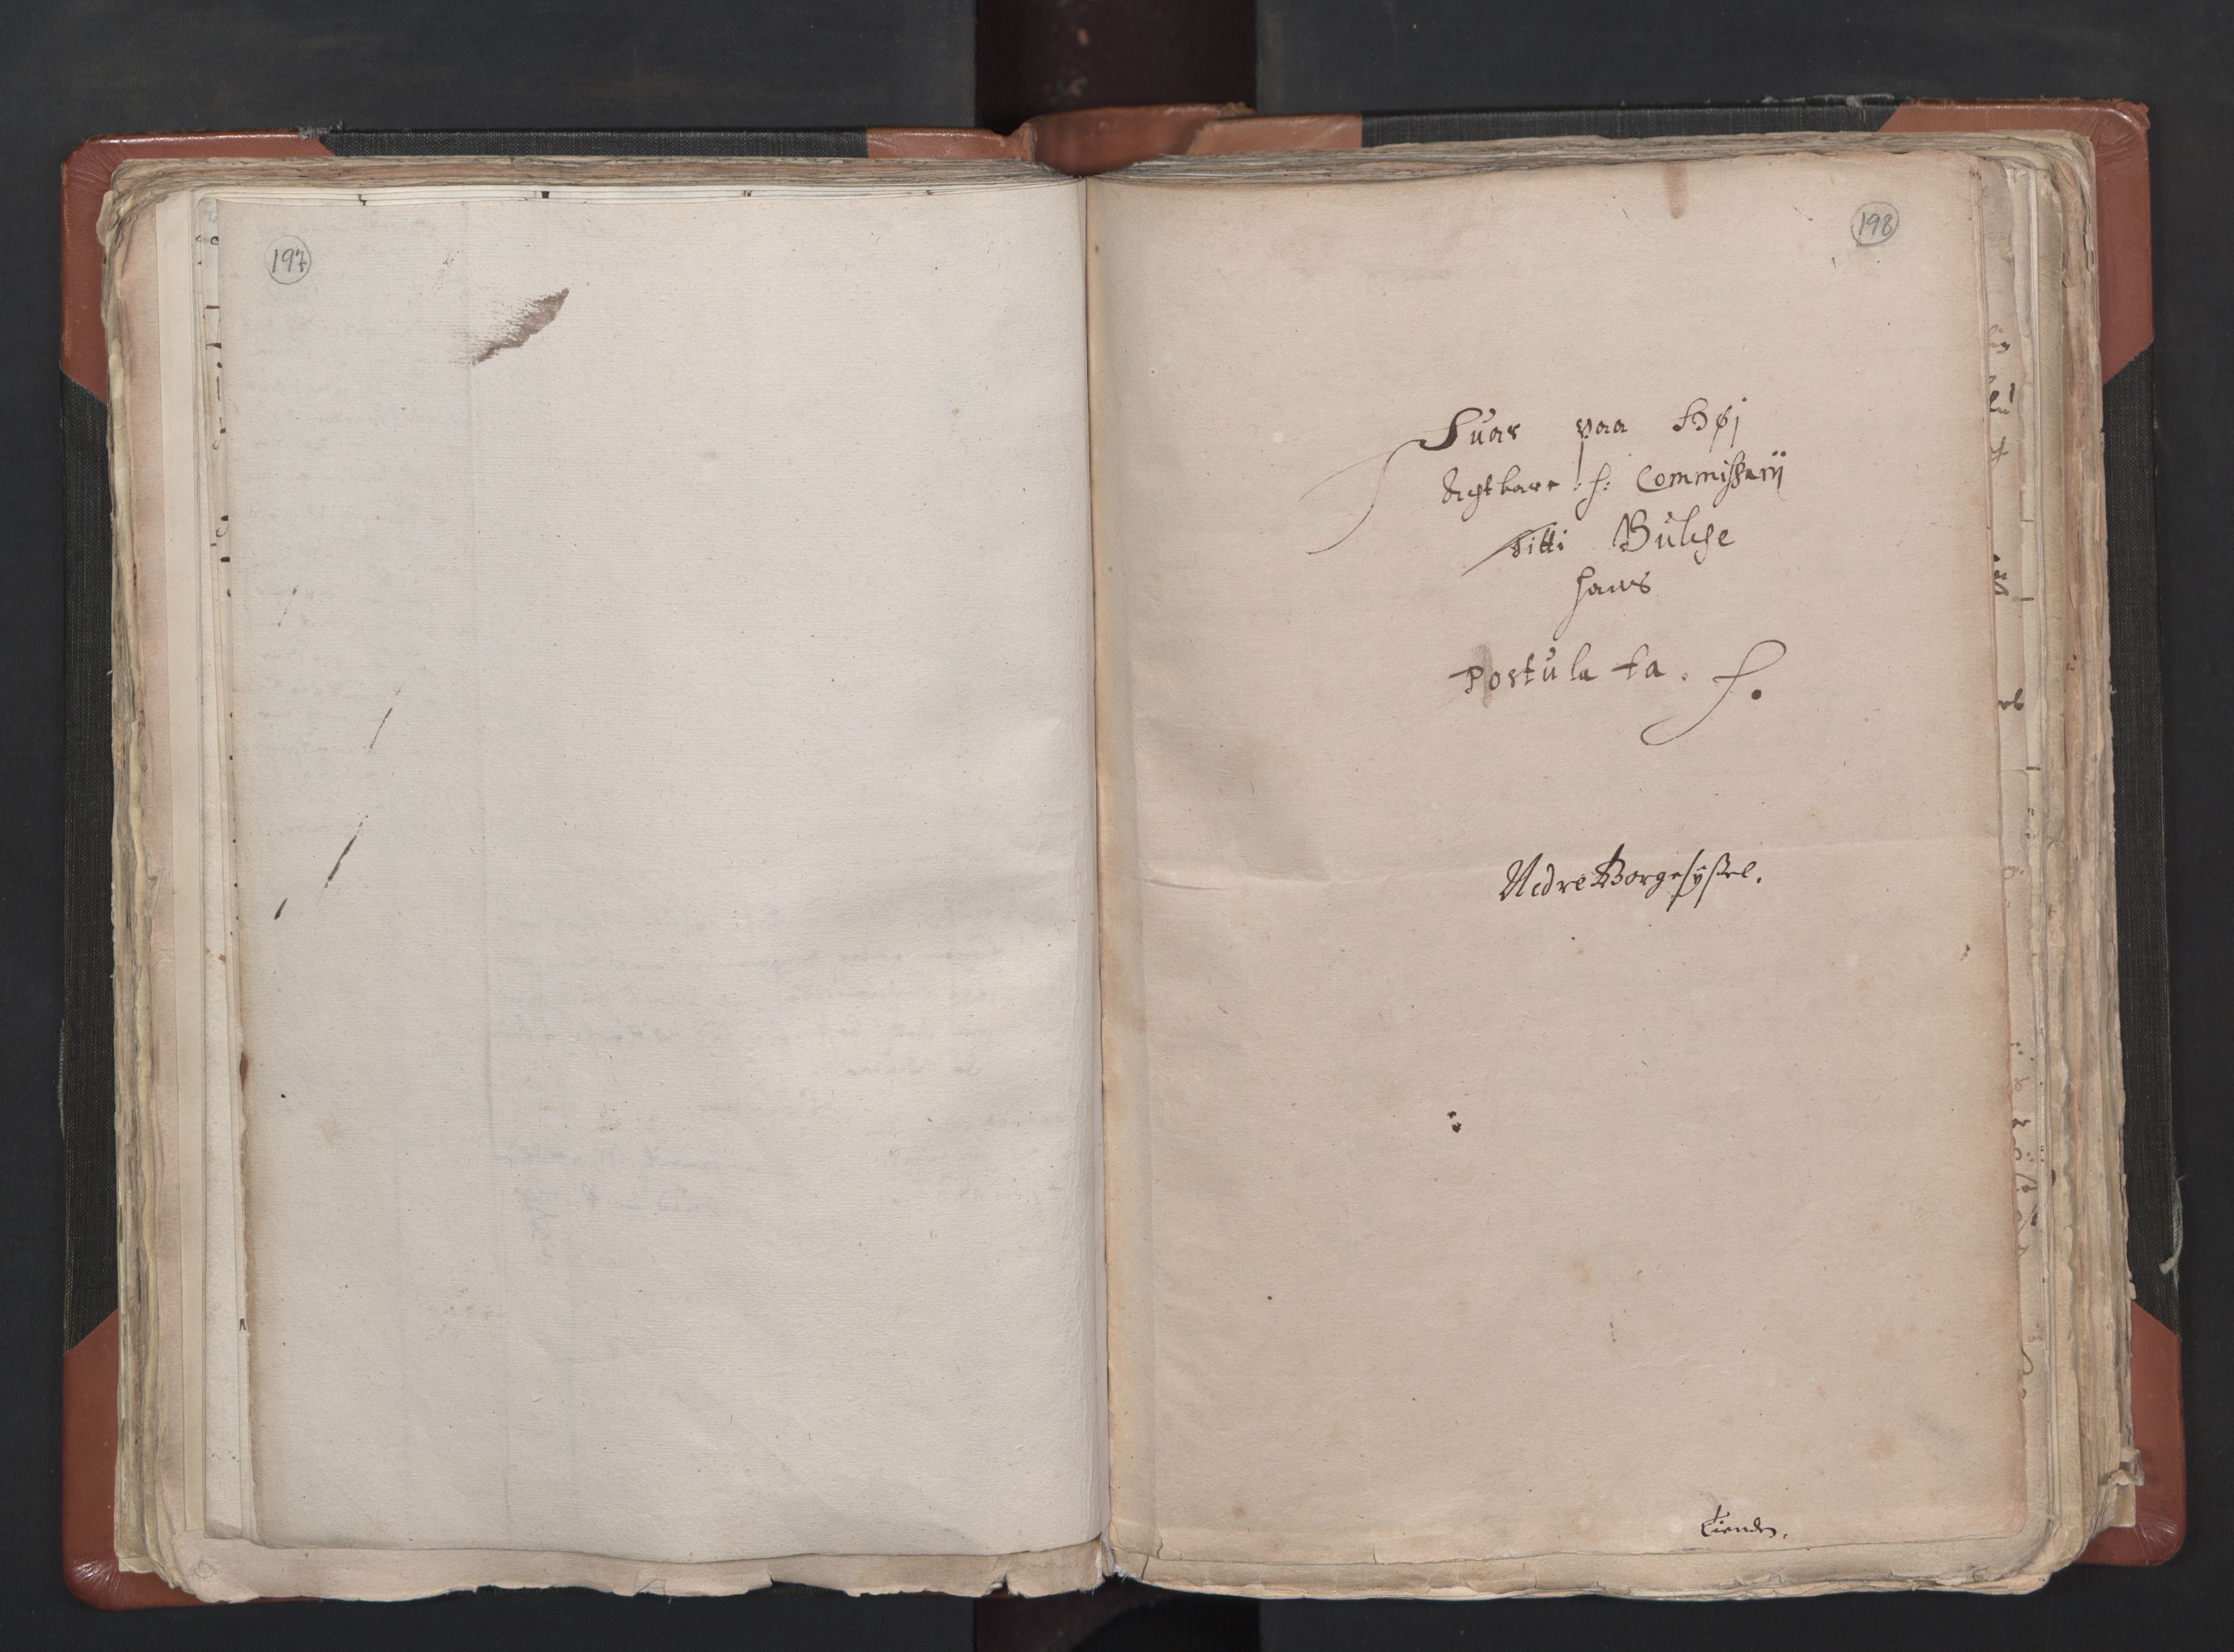 197
198
Suar paa Høj
Achtbare :h: Commissarij
Vitti Bulche
hans
Postulata.
Nedre Borgesyssel.
Tiender.